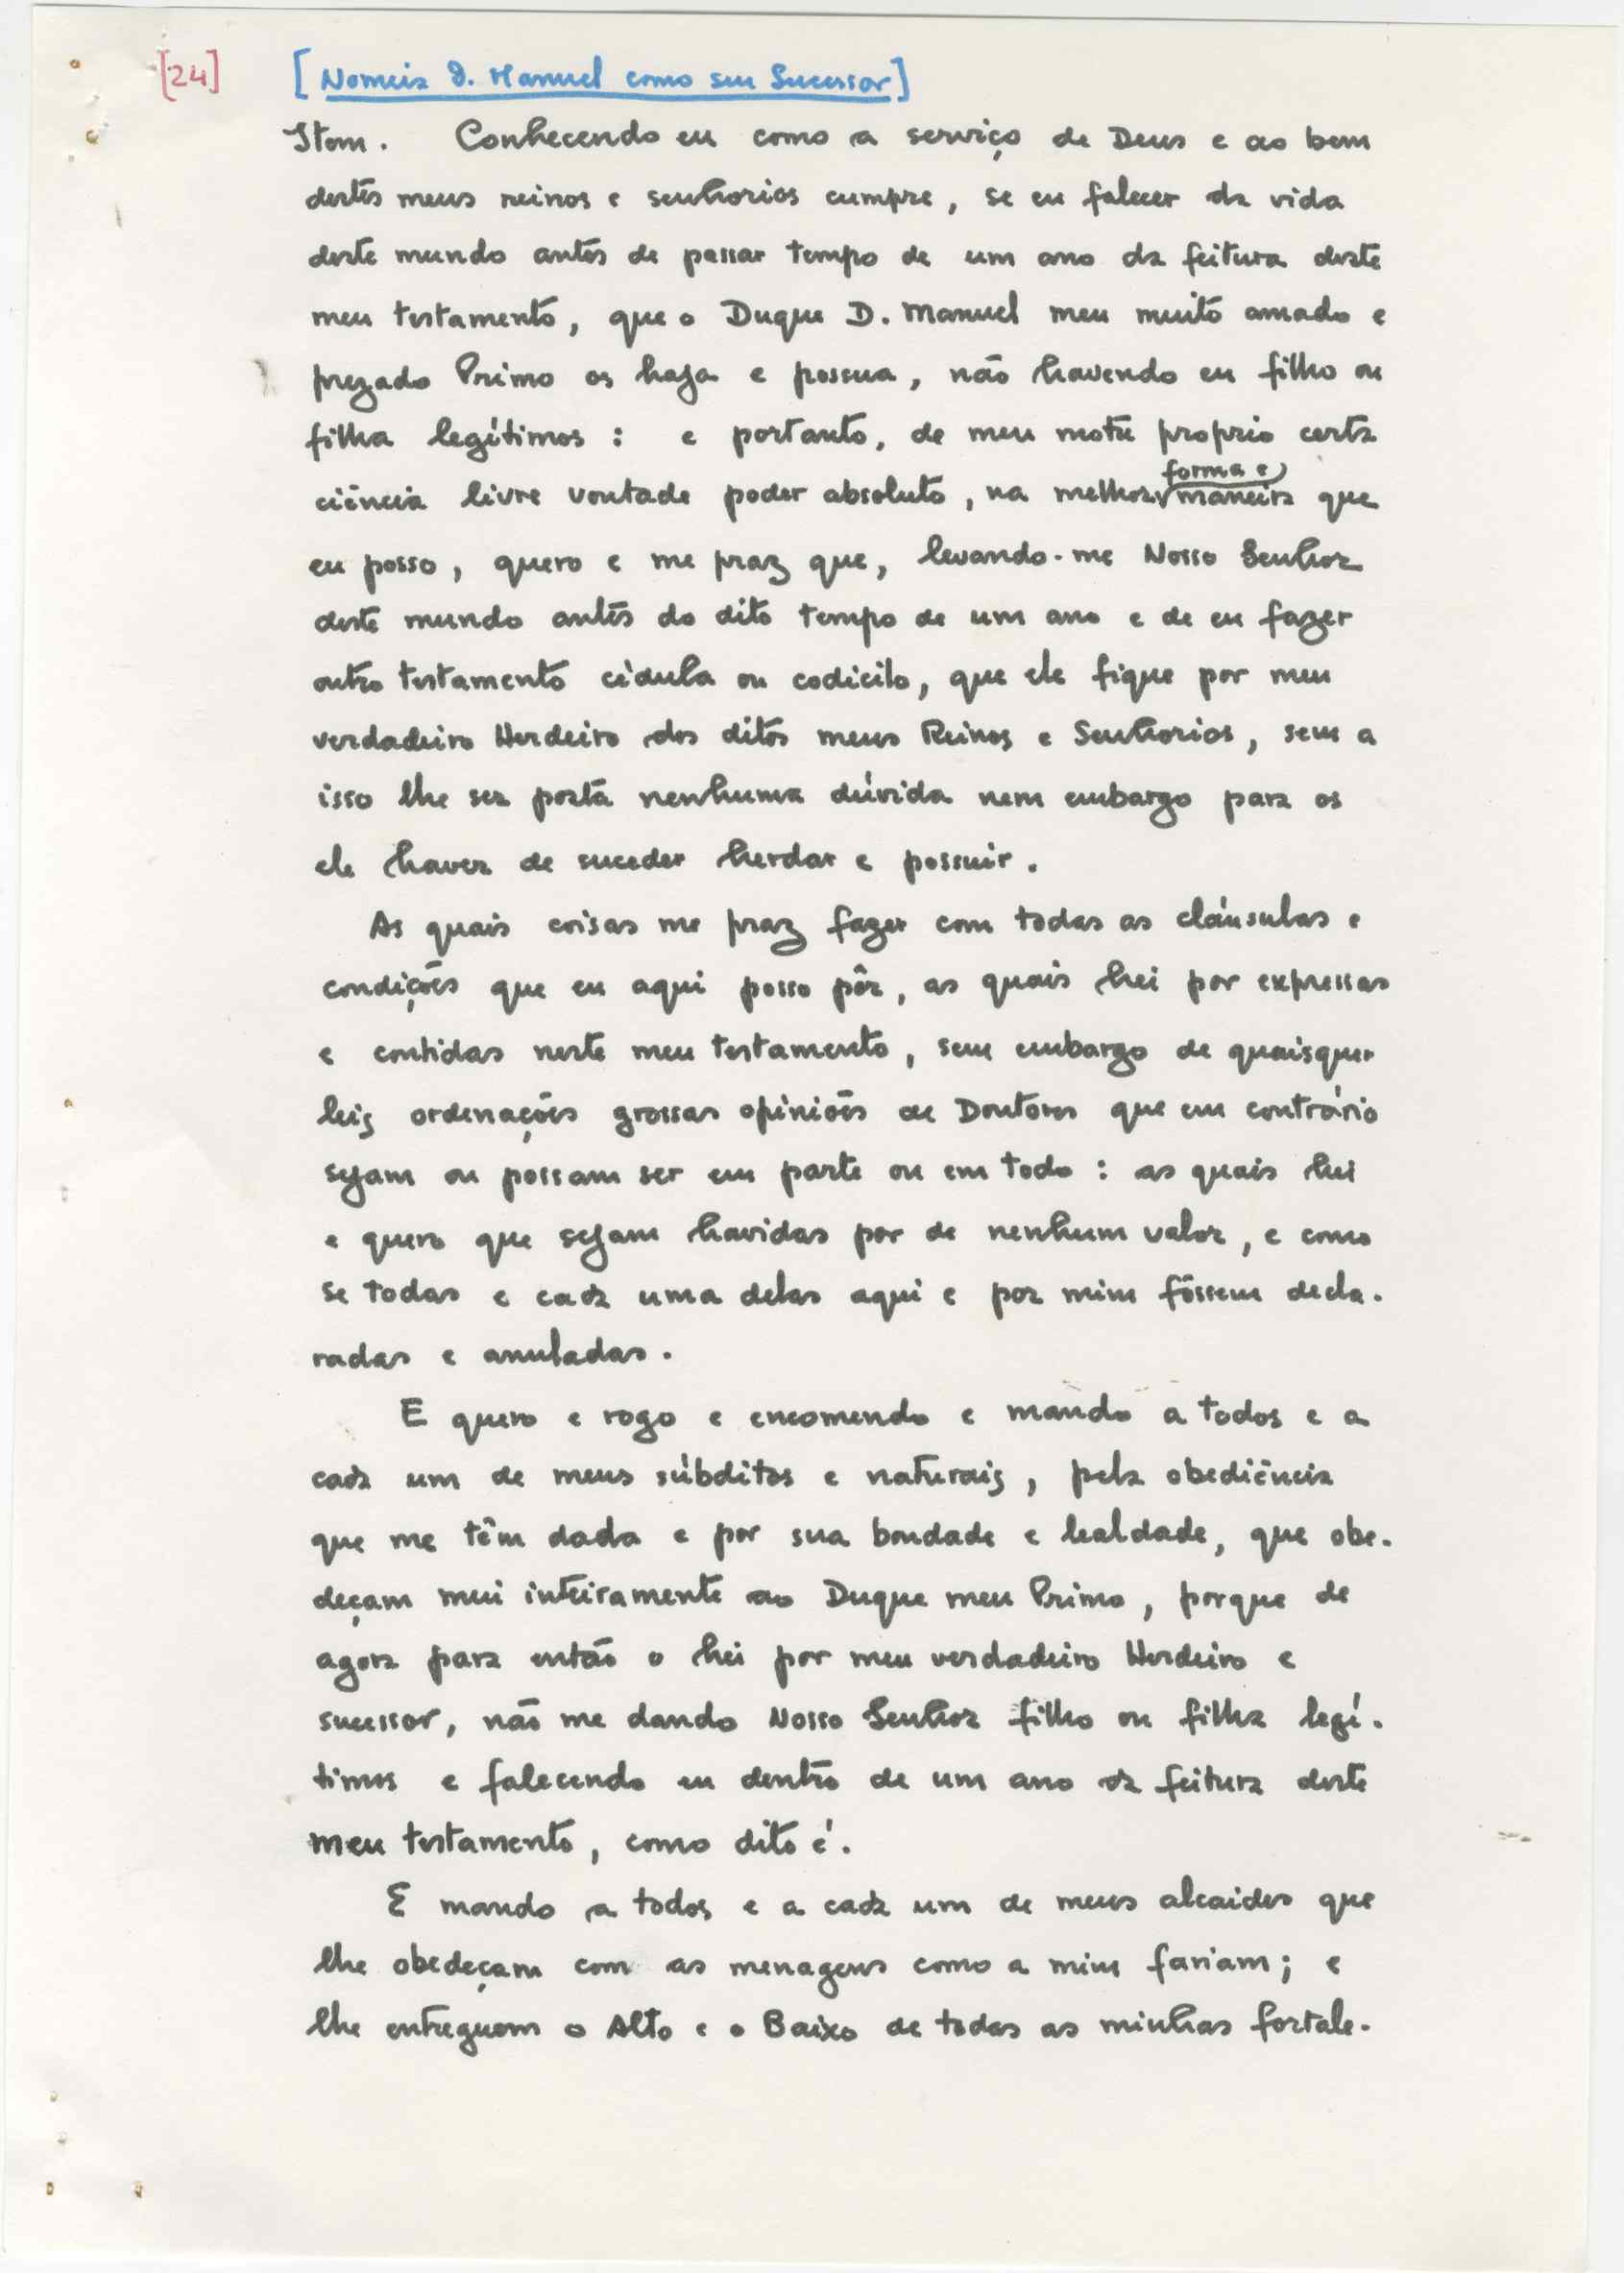 [24] [Nomeia D. Manuel como seu Sucessor]
Item. Conhecendo eu como a serviço de Deus e ao bem
destes meus reinos e senhorios cumpre, se eu falecer da vida
deste mundo antes de passar tempo de um ano da feitura deste
meu testamento, que o Duque D. Manuel meu muito amado e
prezado Primo os haja e possua, não havendo eu filho ou
filha legítimos : e portanto, de meu motu proprio certa
forma e
ciência livre vontade poder absoluto, na melhor maneira que
eu posso, quero e me praz que, levando-me Nosso Senhor
deste mundo antes do dito tempo de um ano e de eu fazer
outro testamento cédula ou codicilo, que ele fique por meu
verdadeiro Herdeiro dos ditos meus Reinos e Senhorios, sem a
isso lhe ser posta nenhuma dúvida nem embargo para os
ele haver de suceder herdar e possuir.
As quais coisas me praz fazer com todas as cláusulas e
condições que eu aqui posso pôr, as quais hei por expressas
e contidas neste meu testamento, sem embargo de quaisquer
leis ordenações grossas opiniões de Doutores que em contrário
sejam ou possam ser em parte ou em todo : as quais hei
e quero que sejam havidas por de nenhum valor, e como
se todas e cada uma delas aqui e por mim fôssem decla-
radas e anuladas.
E quero e rogo e encomendo e mando a todos e a
cada um de meus súbditos e naturais, pela obediência
que me têm dada e por sua bondade e lealdade, que obe-
deçam mui inteiramente ao Duque meu Primo, porque de
agora para então o hei por meu verdadeiro Herdeiro e
sucessor, não me dando Nosso Senhor filho ou filha legí-
timos e falecendo eu dentro de um ano da feitura deste
meu testamento, como dito é.
E mando a todos e a cada um de meus alcaides que
lhe obedeçam com as menagens como a mim fariam; e
lhe entreguem o Alto e o Baixo de todas as minhas fortale-